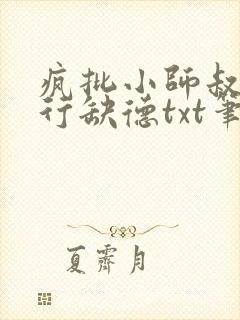 疯批小师叔
行缺德txt笔
夏霁月